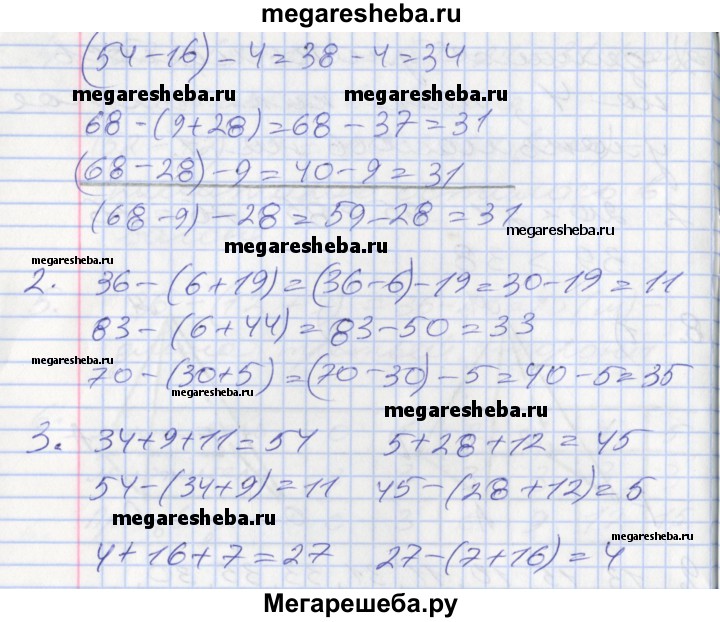 megaresheba.ru
(54-16)-4=38-4=34
megaresheba.ru megaresheba.ru
68-(9+28)=68-37=31
(68-28)-9=40-9=31
(68-9)-28=59-28=31
megaresheba.ru megaresheba.ru
megaresheba.ru
2. 36-(6+19)=(36-6)-19=30-19=11
83-(6+44)=83-50=33
megaresheba.ru
70-(30+5)=(70-30)-5=40-5=35
megaresheba.ru megaresheba.ru
3. 34+9+11=54 5+28+12=45
54-(34+9)=11 45-(28+12)=5
megaresheba.ru megaresheba.ru
4+16+7=27 27-(7+16)=4
Мегарешеба.ру